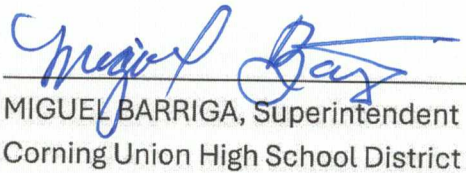 Miguel Barriga
MIGUEL BARRIGA, Superintendent
Corning Union High School District